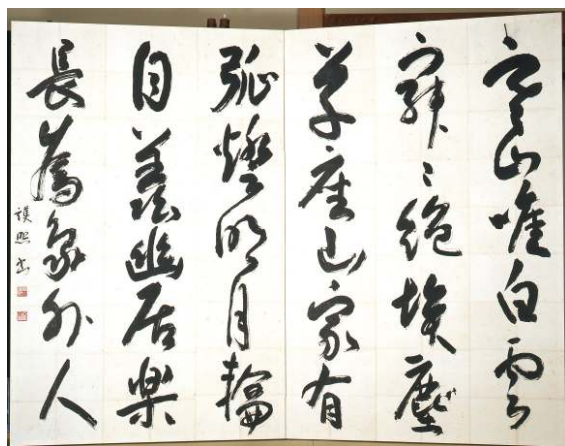 寒山唯白雲
寂々絶埃塵
草座山家有
孤燈明月輪
自羨幽居楽
長為象外人
照書